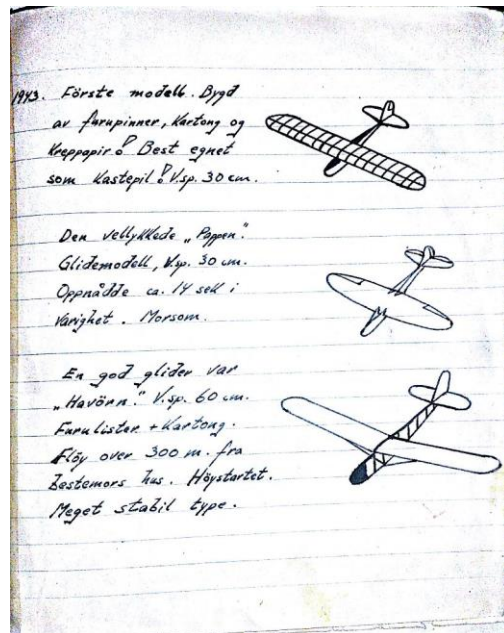 1943. Förste modell. Bygd
av furupinner, Kartong og
Kreppapir! Best egnet
som Kastepil! V.sp. 30 cm.
Den vellykkede „Pappen".
Glidemodell, V.sp. 30 cm.
Oppnådde ca. 14 sek i
Varighet. Morsom.
En god glider var
„Havörn." V.sp. 60 cm.
Furulister + Kartong.
Flöy over 300 m. fra
bestemors hus. Höystartet.
Meget stabil type.